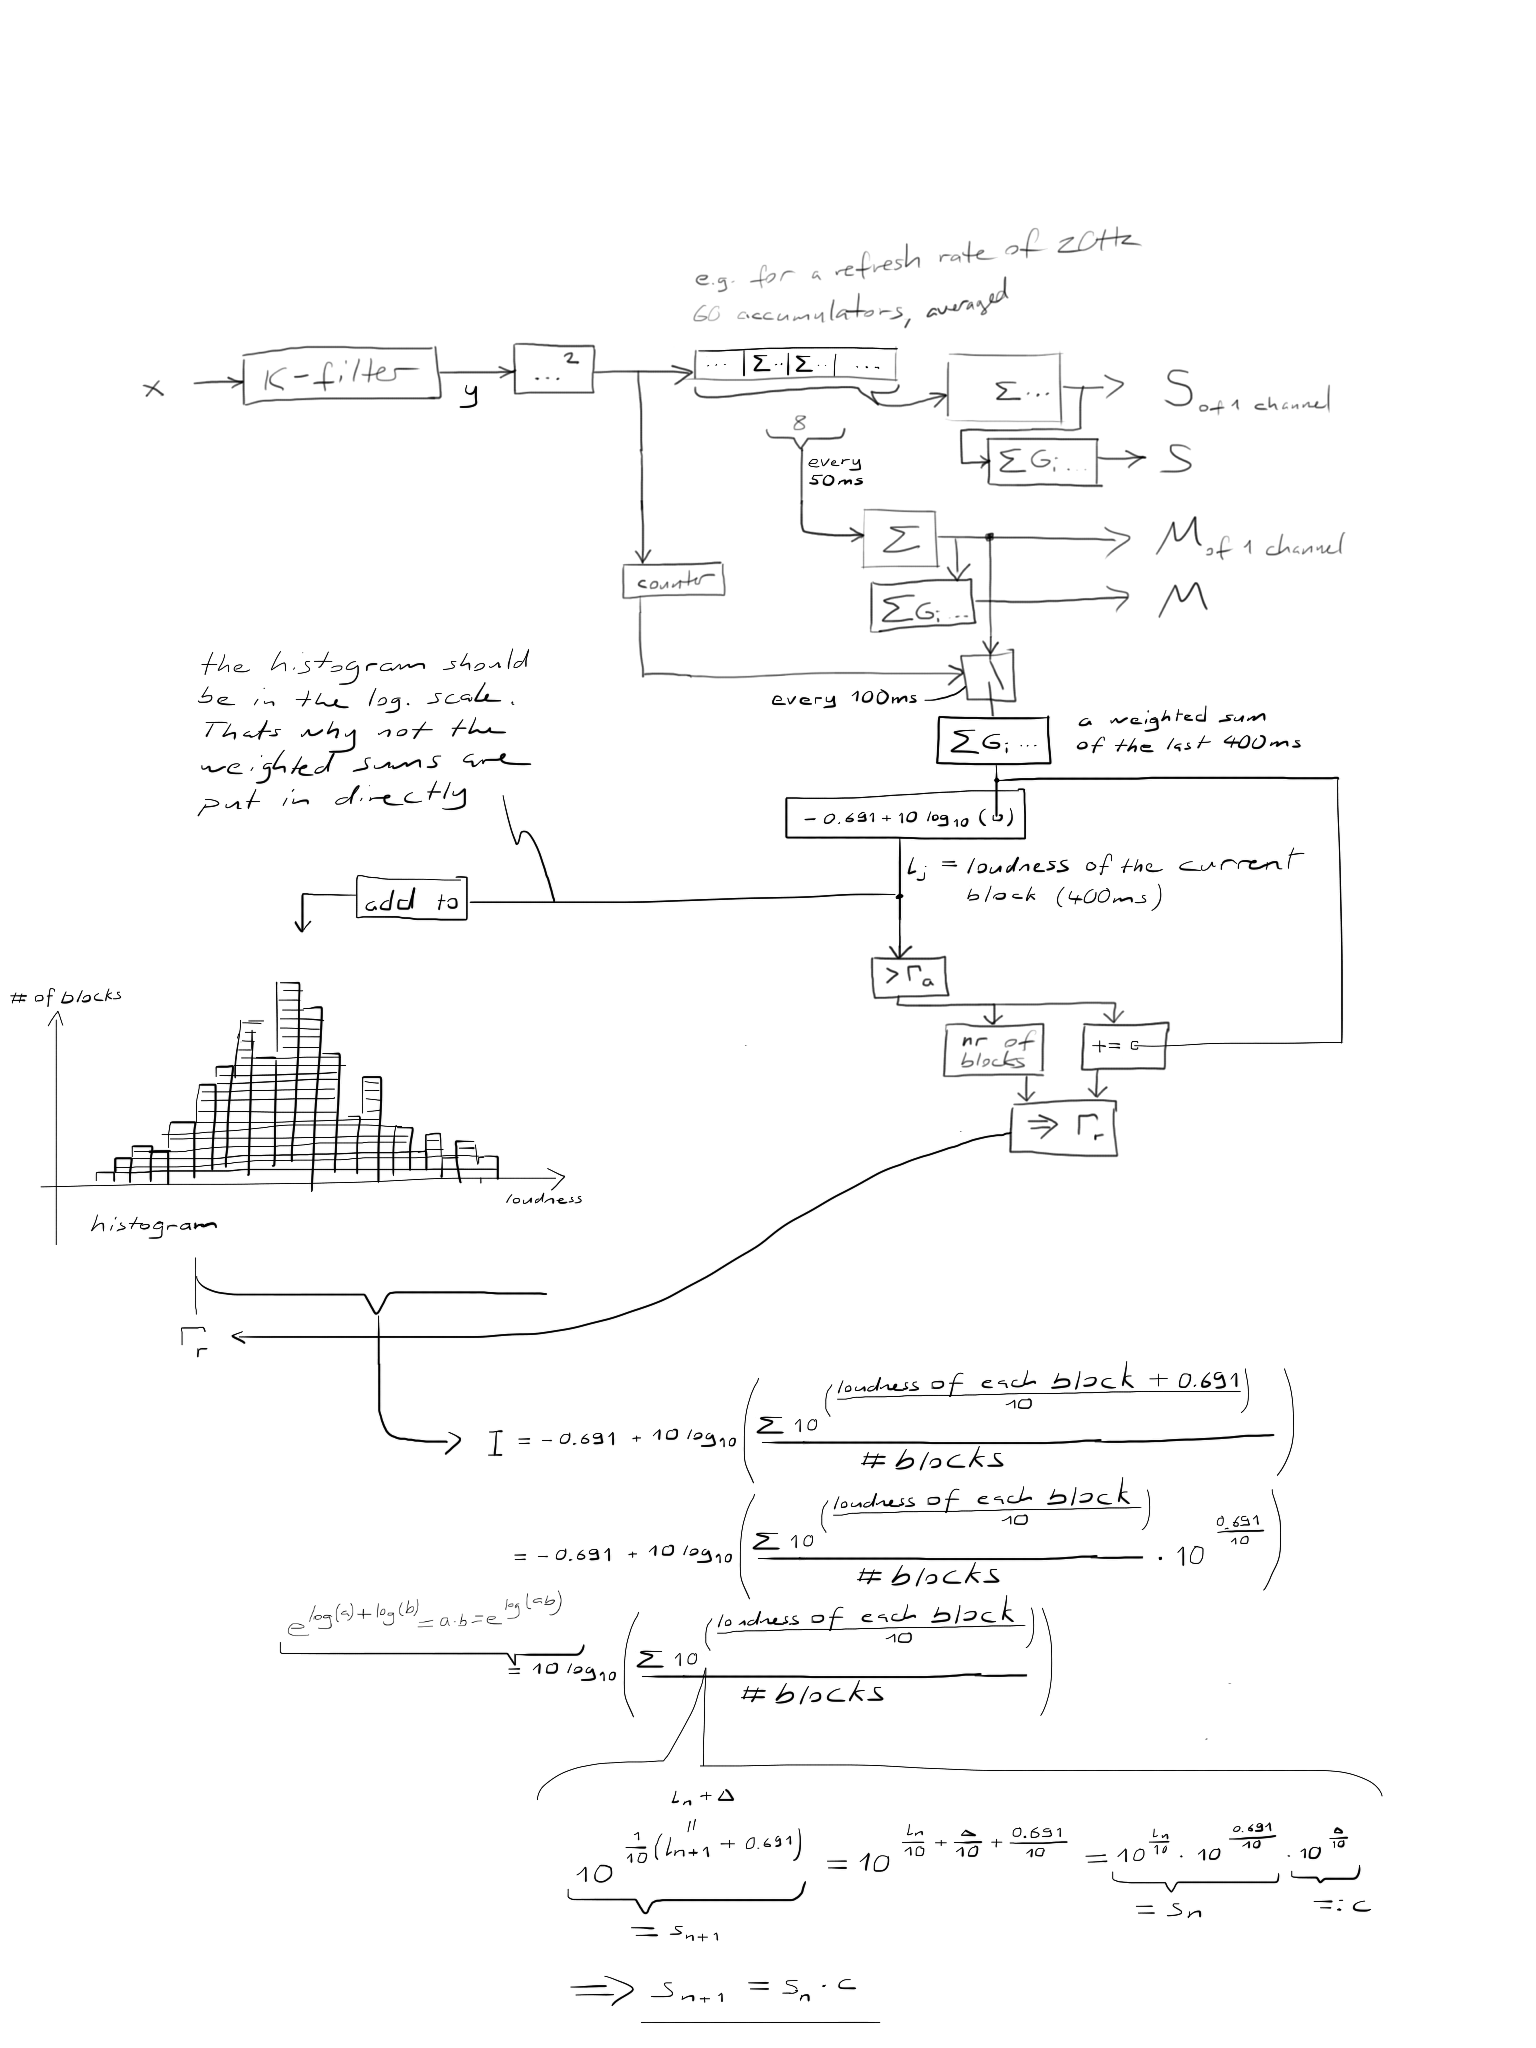 e.g. for a refresh rate of 20Hz
60 accumulators, averaged
x
K-filter
y
...²
... |Σ..|Σ..| ...
Σ...
S of 1 channel
8
every
50ms
ΣGᵢ...
S
Σ
M of 1 channel
counter
ΣGᵢ...
M
the histogram should
be in the log. scale.
Thats why not the
weighted sums are
put in directly
every 100ms
ΣGᵢ...
a weighted sum
of the last 400ms
- 0.691 + 10 log₁₀ ( )
Lⱼ = loudness of the current
block (400ms)
add to
> Γₐ
# of blocks
nr of
blocks
+=
⇒ Γᵣ
loudness
histogram
Γᵣ
I = - 0.691 + 10 log₁₀ ( Σ 10^((loudness of each block + 0.691)/10) / # blocks )
= - 0.691 + 10 log₁₀ ( Σ 10^((loudness of each block)/10) / # blocks · 10^(0.691/10) )
e^(log(a)+log(b)) = a·b = e^(log(ab))
= 10 log₁₀ ( Σ 10^((loudness of each block)/10) / # blocks )
Lₙ + Δ
=
10^(1/10 (Lₙ₊₁ + 0.691)) = 10^(Lₙ/10 + Δ/10 + 0.691/10) = 10^(Lₙ/10) · 10^(0.691/10) · 10^(Δ/10)
= sₙ₊₁
= sₙ
=: c
⇒ sₙ₊₁ = sₙ · c